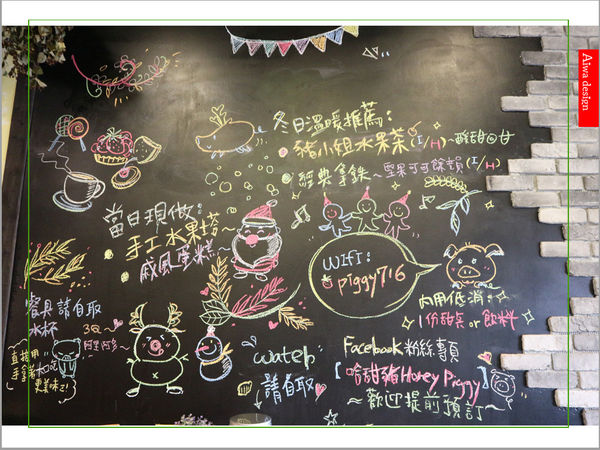 冬日溫暖推薦:
豬小姐水果茶(I/H)~酸甜回甘
經典拿鐵~堅果可可餘韻(I/H)
當日現做:
手工水果塔~
戚風蛋糕
WIFI:
piggy716
內用低消:
1份甜点or飲料
餐具請自取
水杯
3Q~
阿里阿多~
直接用
手拿著大口吃
更美味!
water:
請自取
Facebook粉絲專頁
【哈甜豬Honey Piggy】
~歡迎提前預訂~
Aiwa design